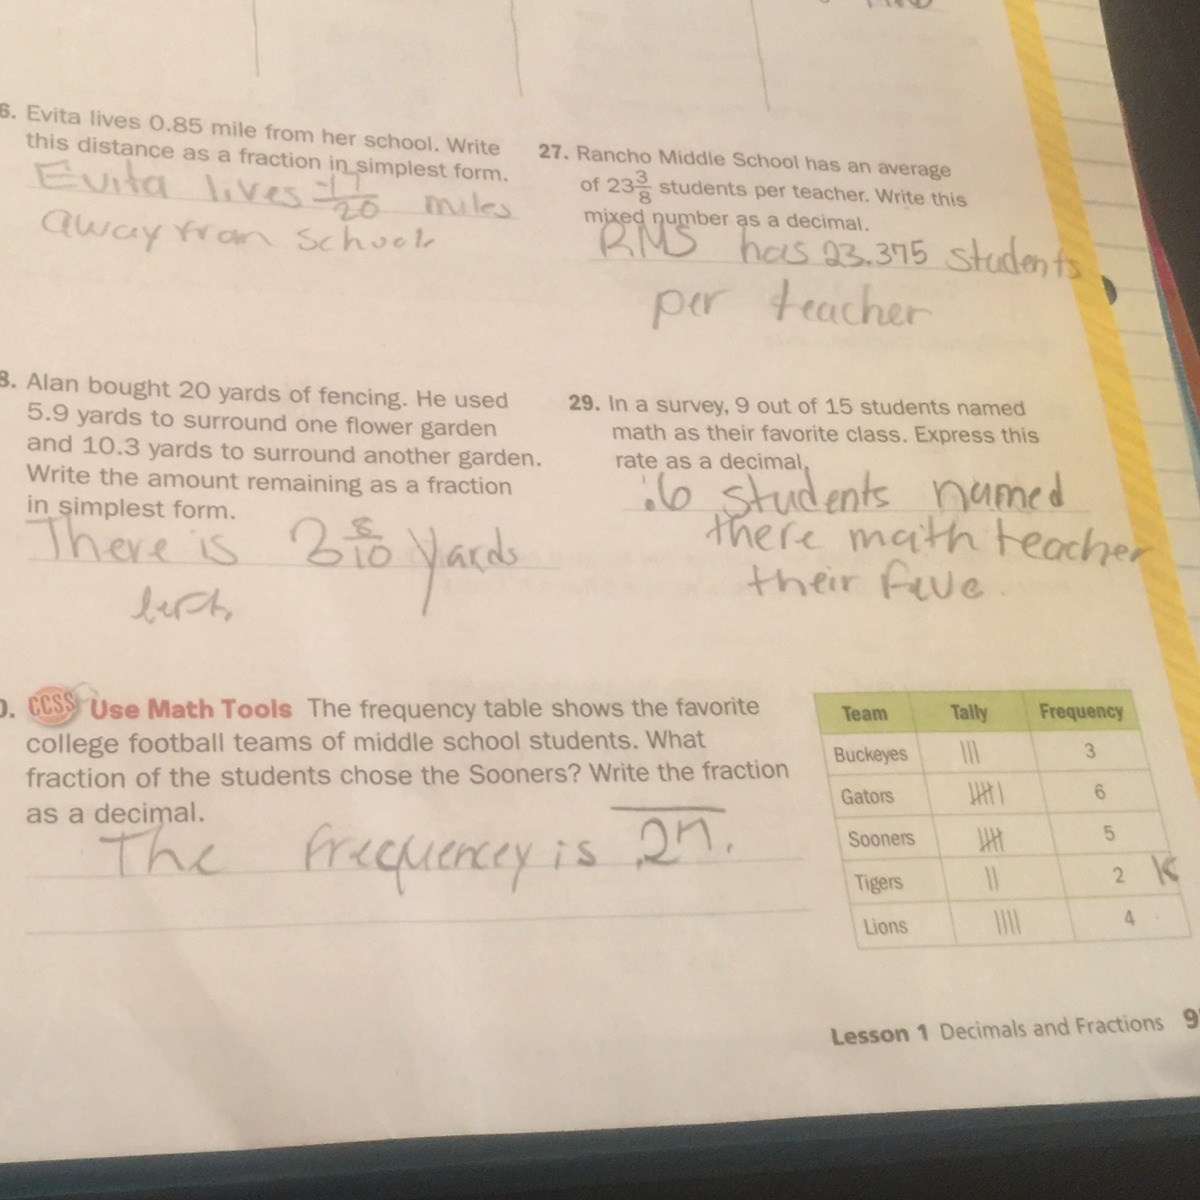 6. Evita lives 0.85 mile from her school. Write
this distance as a fraction in simplest form.
Evita lives 17/20 miles
away from school
27. Rancho Middle School has an average
of 23 3/8 students per teacher. Write this
mixed number as a decimal.
RMS has 23.375 students
per teacher
8. Alan bought 20 yards of fencing. He used
5.9 yards to surround one flower garden
and 10.3 yards to surround another garden.
Write the amount remaining as a fraction
in simplest form.
There is 3 8/10 yards
29. In a survey, 9 out of 15 students named
math as their favorite class. Express this
rate as a decimal.
.6 students named
there math teacher
their fave
0. CCSS Use Math Tools The frequency table shows the favorite
college football teams of middle school students. What
fraction of the students chose the Sooners? Write the fraction
as a decimal.
The frequencey is
Team Tally Frequency
Buckeyes 3
Gators 6
Sooners 5
Tigers 2
Lions 4
Lesson 1 Decimals and Fractions 9